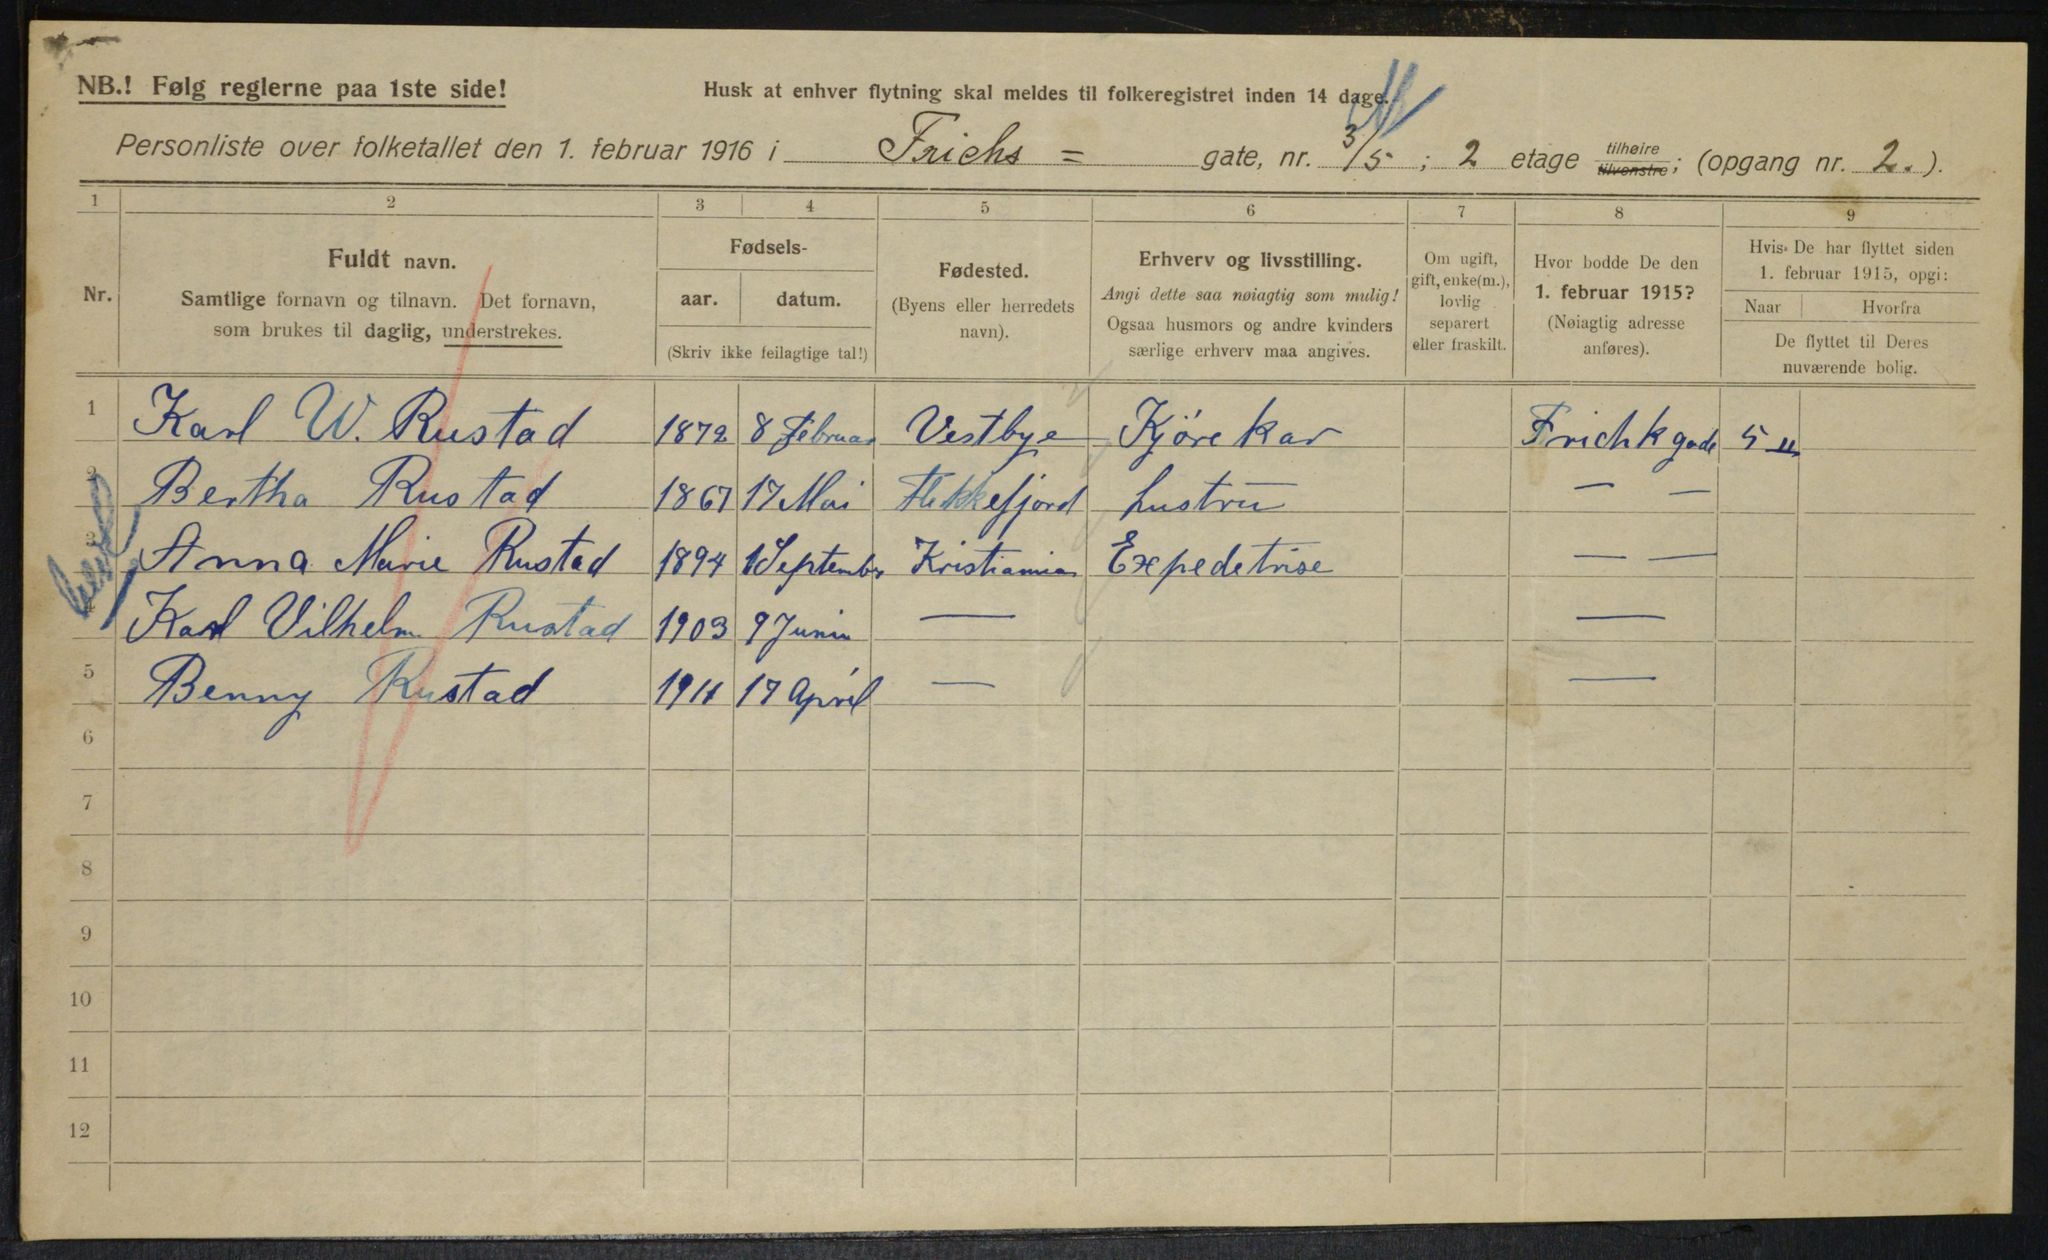 NB.! Følg reglerne paa 1ste side!
Husk at enhver flytning skal meldes til folkeregistret inden 14 dage.
Personliste over folketallet den 1. februar 1916 i Frichs = gate, nr. 3/5 ; 2 etage tilhøire tilvenstre; (opgang nr. 2. ).
1 2 3 4 5 6 7 8 9
Nr.
Fuldt navn.
Samtlige fornavn og tilnavn. Det fornavn,
som brukes til daglig, understrekes.
Fødsels-
aar. datum.
(Skriv ikke feilagtige tal!)
Fødested.
(Byens eller herredets
navn).
Erhverv og livsstilling.
Angi dette saa nøiagtig som mulig!
Ogsaa husmors og andre kvinders
særlige erhverv maa angives.
Om ugift,
gift, enke(m.),
lovlig
separert
eller fraskilt.
Hvor bodde De den
1. februar 1915?
(Nøiagtig adresse
anføres).
Hvis De har flyttet siden
1. februar 1915, opgi:
Naar Hvorfra
De flyttet til Deres
nuværende bolig.
1 Karl W. Rustad 1872 8 Februar Vestbye Kjörekar Frichkgade 5 II
2 Bertha Rustad 1867 17 Mai Flekkefjord hustru — —
3 Anna Marie Rustad 1894 1 September Kristiania Expedetrise — —
4 Karl Vilhelm Rustad 1903 9 Juni — —
5 Benny Rustad 1911 17 April — —
6
7
8
9
10
11
12